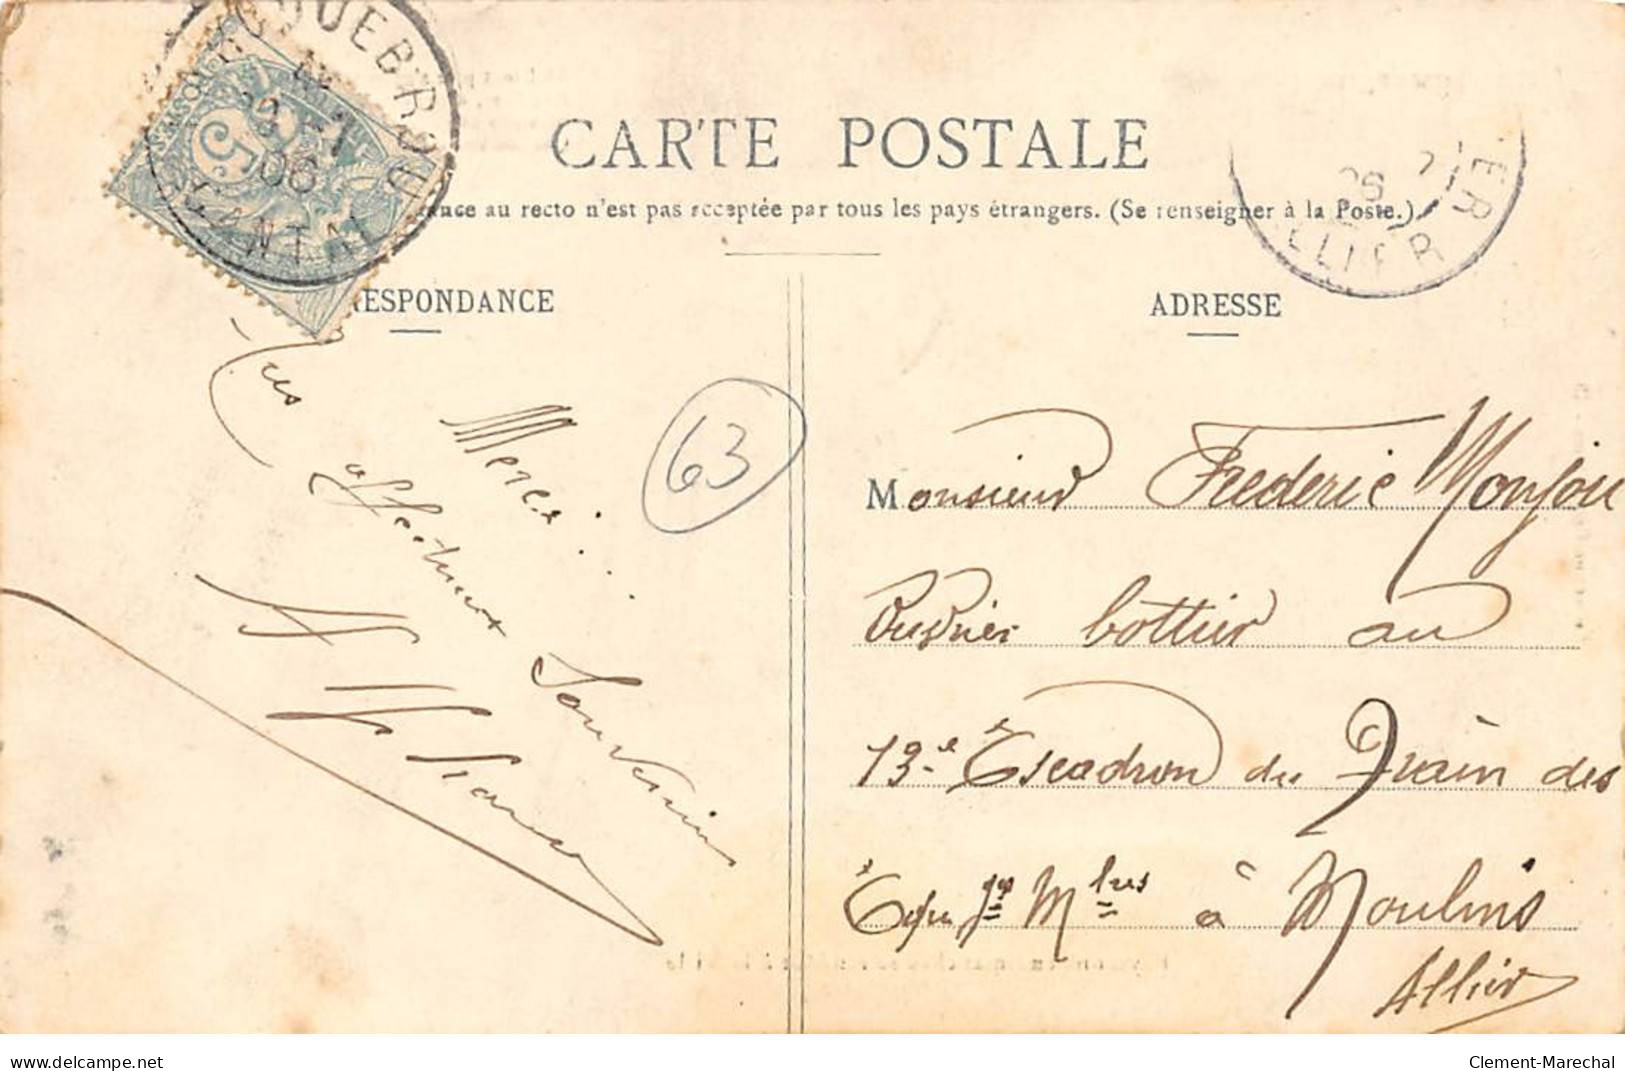 CARTE POSTALE
au recto n'est pas acceptée par tous les pays étrangers. (Se renseigner à la Poste.)
RESPONDANCE
ADRESSE
CANTAL
06
5
ELLIER
63
Merci
affectueux
Souvenir
Monsieur Frederic Monjou
Ouvrier bottier au
13e Escadron du Train des
Eqp gs Mtres à Moulins
Allier
delcampe.net
Clement-Marechal